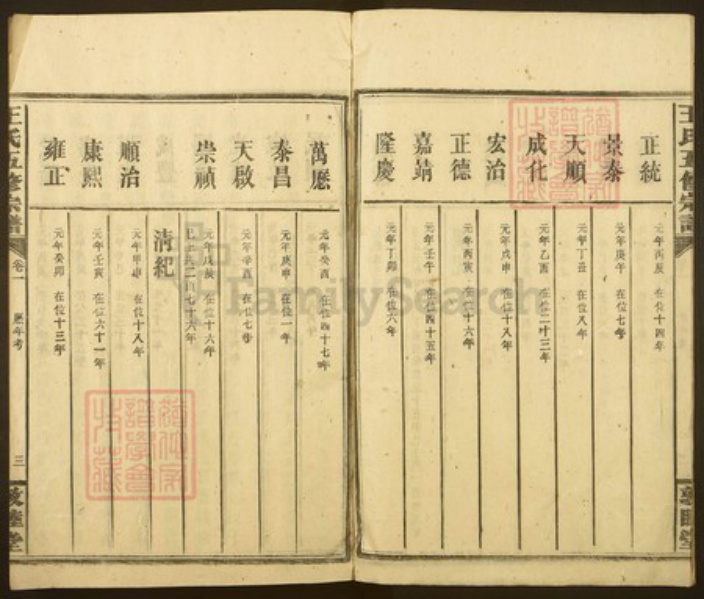 王氏五修宗譜
敦睦堂
正統 元年丙辰 在位十四年
景泰 元年庚午 在位七年
天順 元年丁丑 在位八年
成化 元年乙酉 在位二十三年
宏治 元年戊申 在位十八年
正德 元年丙寅 在位十六年
嘉靖 元年壬午 在位四十五年
隆慶 元年丁卯 在位六年
萬厯 元年癸酉 在位四十七年
泰昌 元年庚申 在位一年
天啟 元年辛酉 在位七年
崇禎 元年戊辰 在位十六年
二百七十六年
清紀
順治 元年甲申 在位十八年
康熙 元年壬寅 在位六十一年
雍正 元年癸卯 在位十三年
王氏五修宗譜
卷一 歷年考 三
敦睦堂
FamilySearch